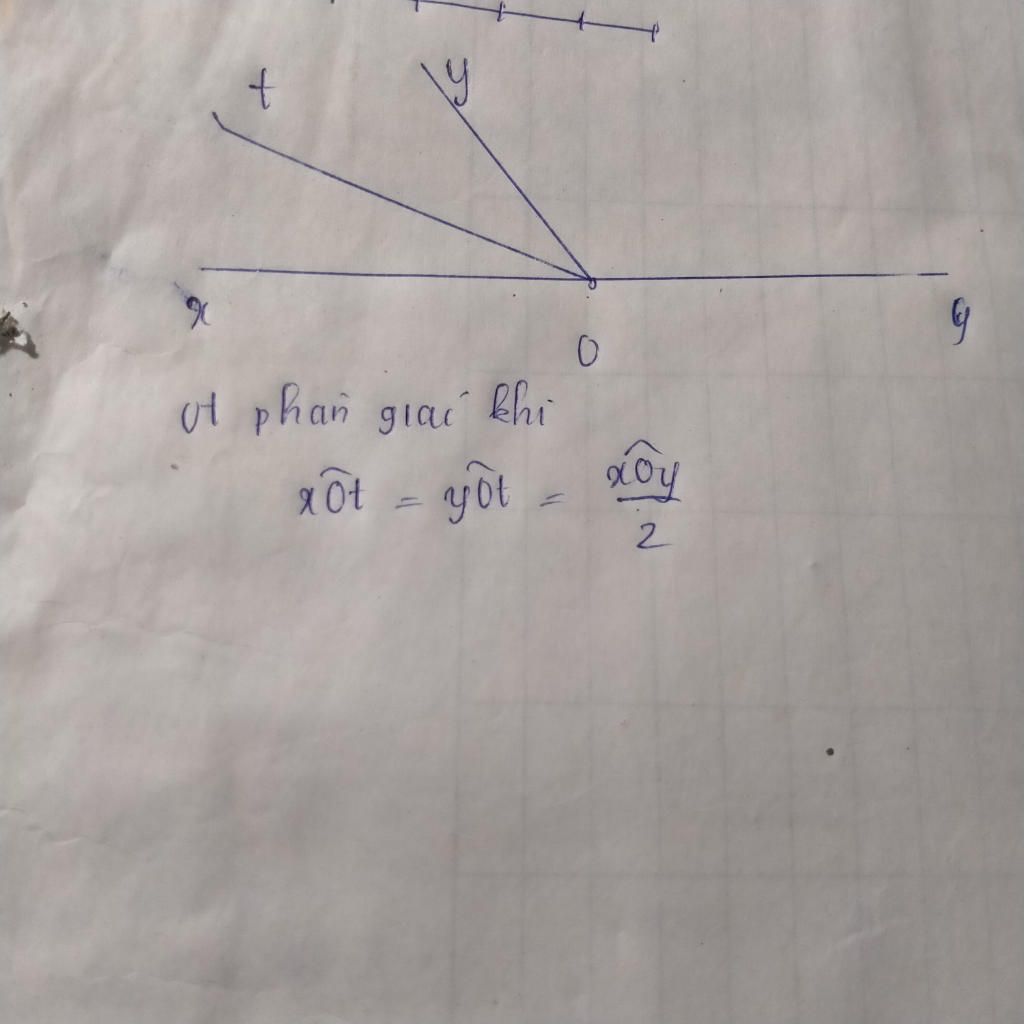 t
y
x
y
O
Ot phân giác khi
xÔt = yÔt = xÔy
2